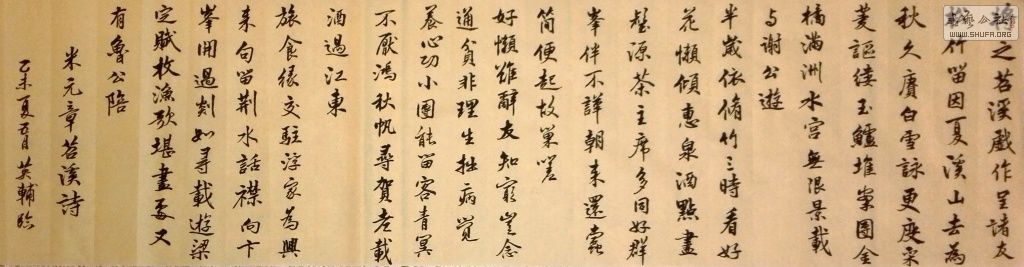 將之苕溪戲作呈諸友
松竹留因夏溪山去為
秋久賡白雪詠更度采
菱謳縷玉鱸堆案團金
橘滿洲水宮無限景載
与謝公遊
半歲依脩竹三時看好
花懶傾惠泉酒點盡
壑源茶主席多同好群
峯伴不譁朝來還蠹
簡便起故巢嗟
好懶難辭友知窮豈念
通貧非理生拙病覺
養心功小圃能留客青冥
不厭鴻秋帆尋賀老載
酒過江東
旅食緣交駐浮家為興
來句留荊水話襟向卞
峯開過剡如尋戴遊梁
定賦枚漁歌堪畫處又
有魯公陪
米元章苕溪詩
乙未夏月 英輔臨
WWW.SHUFA.ORG